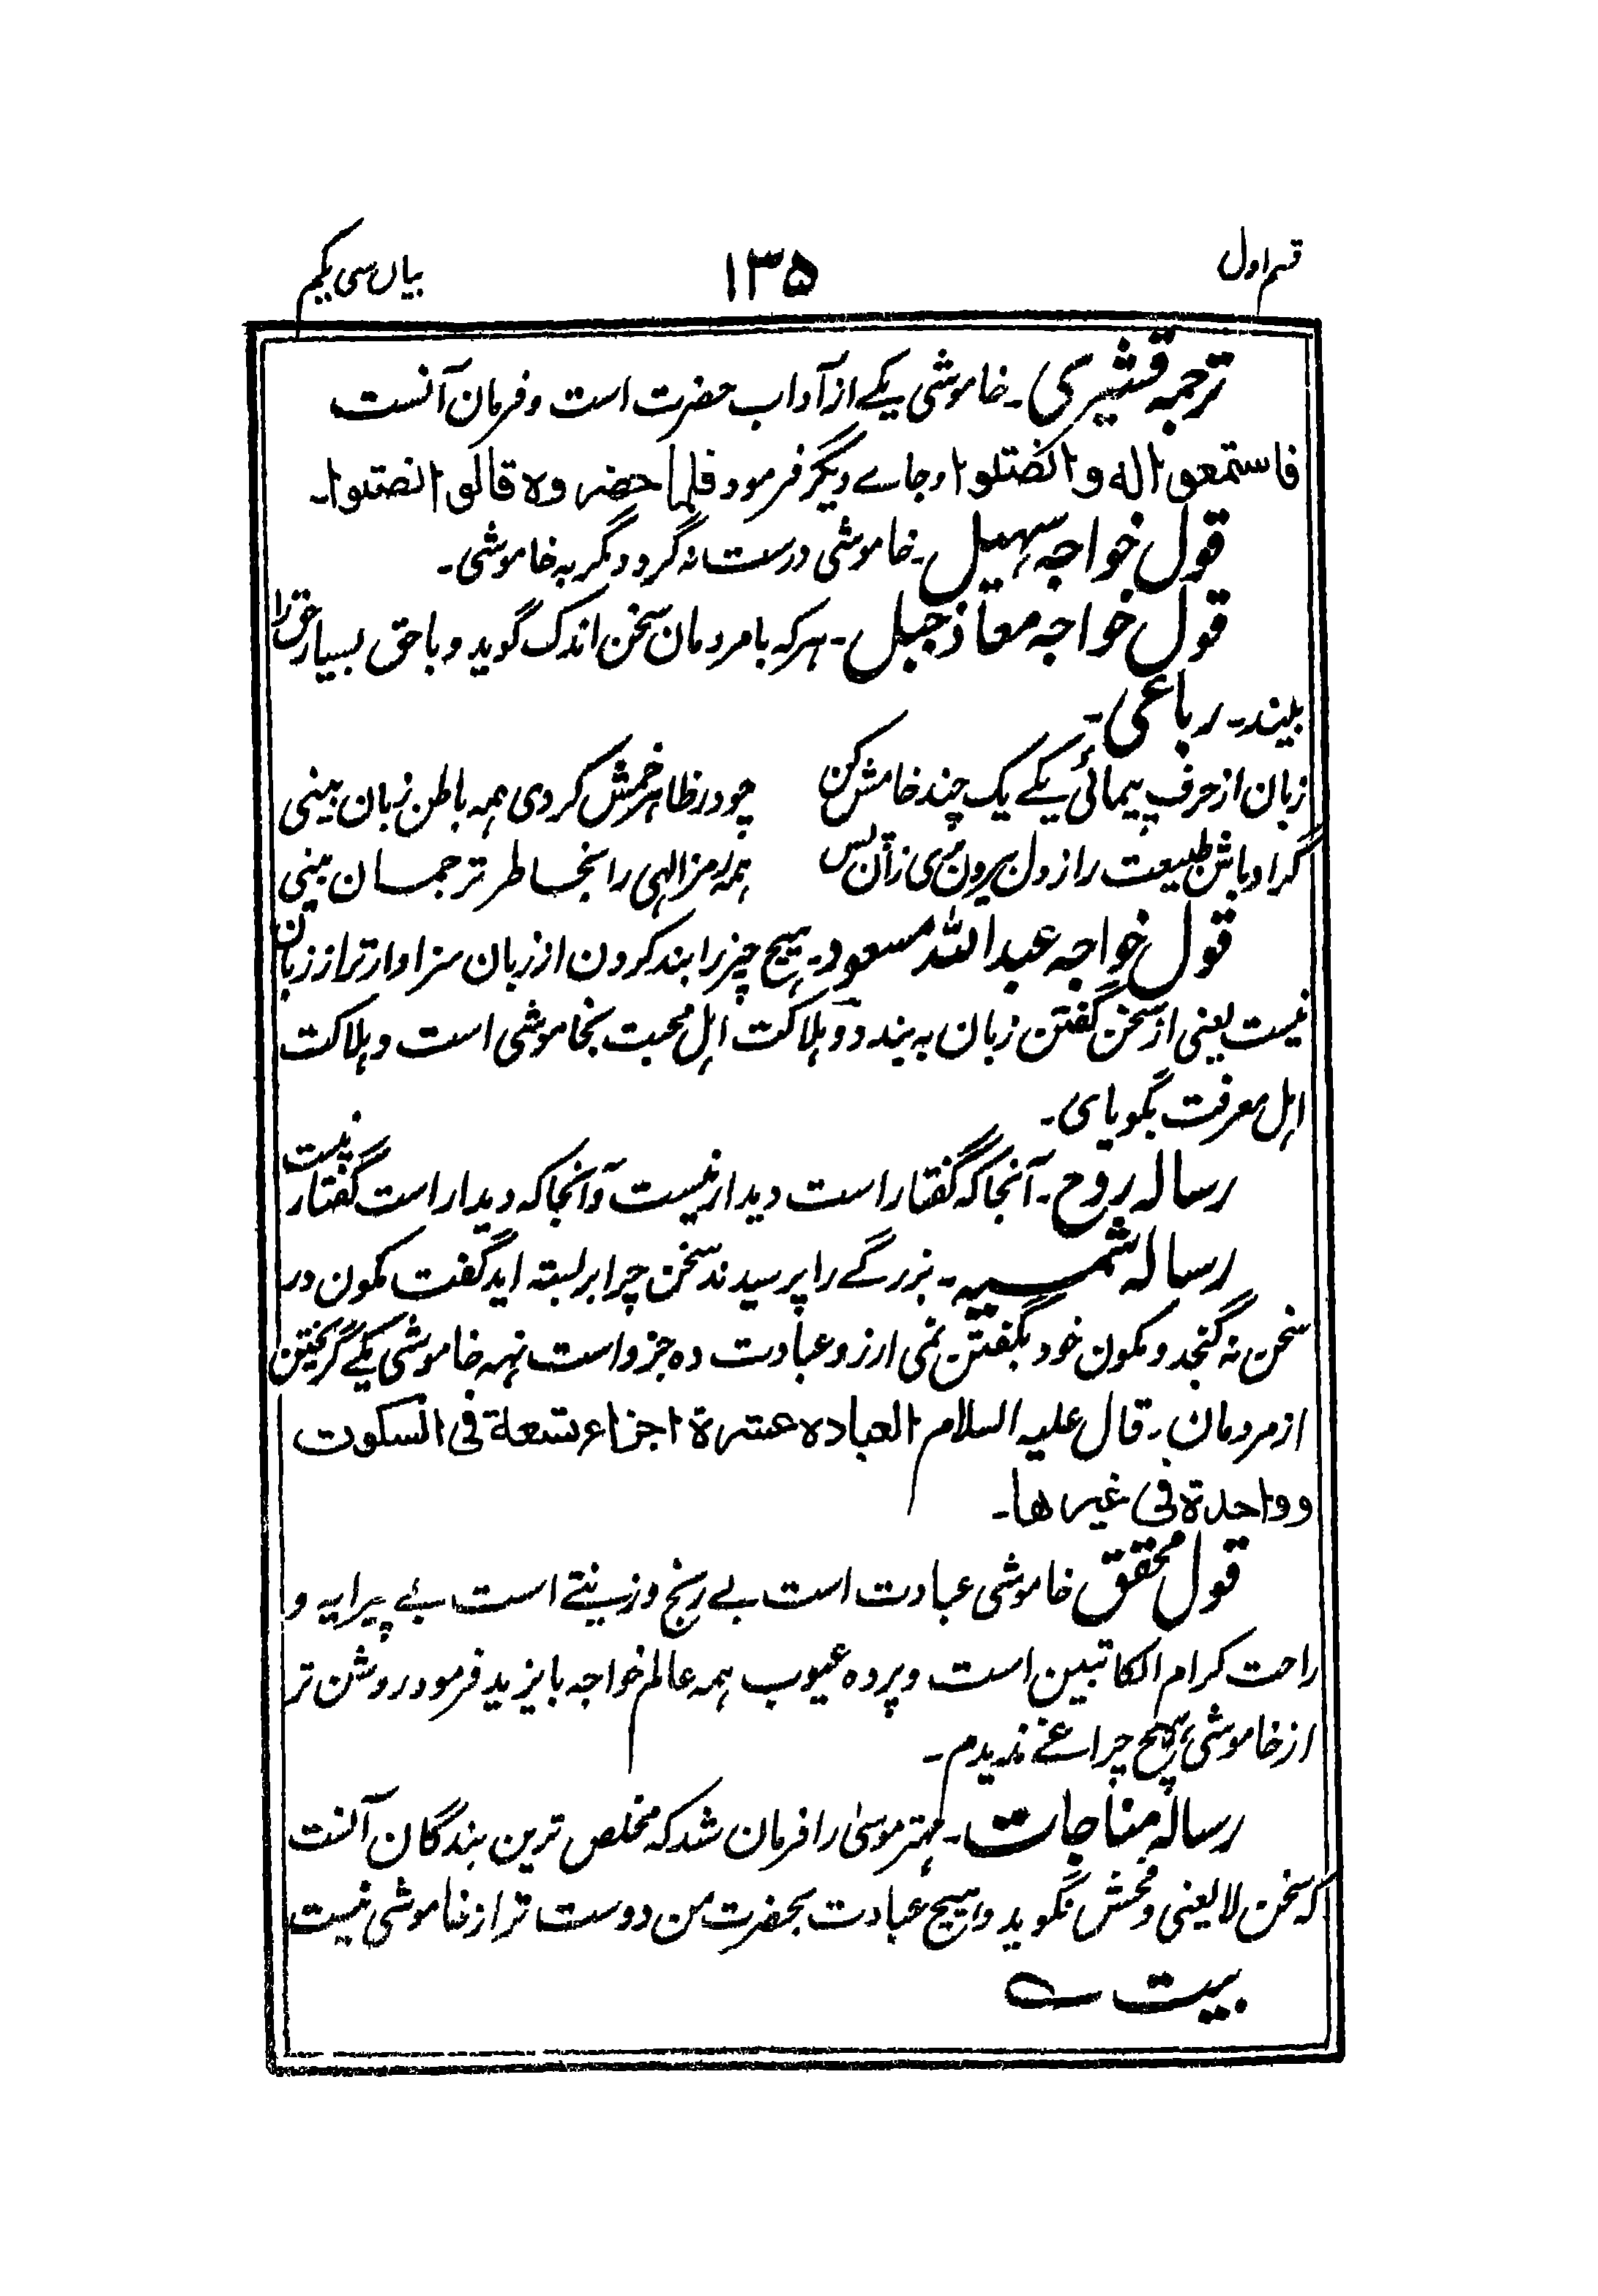 قسم اول
۱۳۵
بیاں سی یکم
ترجمہ قشیری۔ خاموشی یکے از آداب حضرت است و فرمان آنست
فاستمعوا لہ و انصتوا و جاے دیگر فرمود فلما حضروہ قالوا انصتوا۔
قول خواجہ سہیل۔ خاموشی درست نہ گردد مگر بہ خاموشی۔
قول خواجہ معاذ جبل۔ ہر کہ با مردمان سخن اندک گوید و با حق بسیار حق را
بیند۔ رباعی۔
زبان از حرف پیمائی یکے یک چند خامش کن چو در ظاہر خمش کردی ہمہ باطن زبان بینی
گر اوباش طبیعت را ز دل بیرون کنی زان پس ہمہ رمز الہی را بخاطر ترجمان بینی
قول خواجہ عبداللہ مسعود۔ ہیچ چیز را بند کردن از زبان سزاوار تر از زبان
نیست یعنی از سخن گفتن زبان بہ بندد و ہلاکت اہل محبت بخاموشی است و ہلاکت
اہل معرفت بگویای۔
رسالہ روح۔ آنجا کہ گفتار است دیدار نیست و آنجا کہ دیدار است گفتار نیست
رسالہ شمسیہ۔ بزرگے را پرسیدند سخن چرا بر بستہ اید گفت مکون در
سخن نہ گنجد و مکون خود بگفتن نمی ارزد و عبادت دہ جزو است نہہ خاموشی یکے گریختن
از مردمان۔ قال علیہ السلام العبادہ عشرة اجزاء تسعة فی السکوت
و واحدة فی غیرھا۔
قول محقق خاموشی عبادت است بے رنج و زینتے است بے پیرایہ و
راحت کرام الکاتبین است و پردہ عیوب ہمہ عالم خواجہ بایزید فرمود روشن تر
از خاموشی ہیچ چراغے ندیدم۔
رسالہ مناجات۔ مہتر موسیٰ را فرمان شد کہ مخلص ترین بندگان آنست
کہ سخن لایعنی و فحش نگوید و ہیچ عبادت بحضرت من دوست تر از خاموشی نیست
بیت ؎